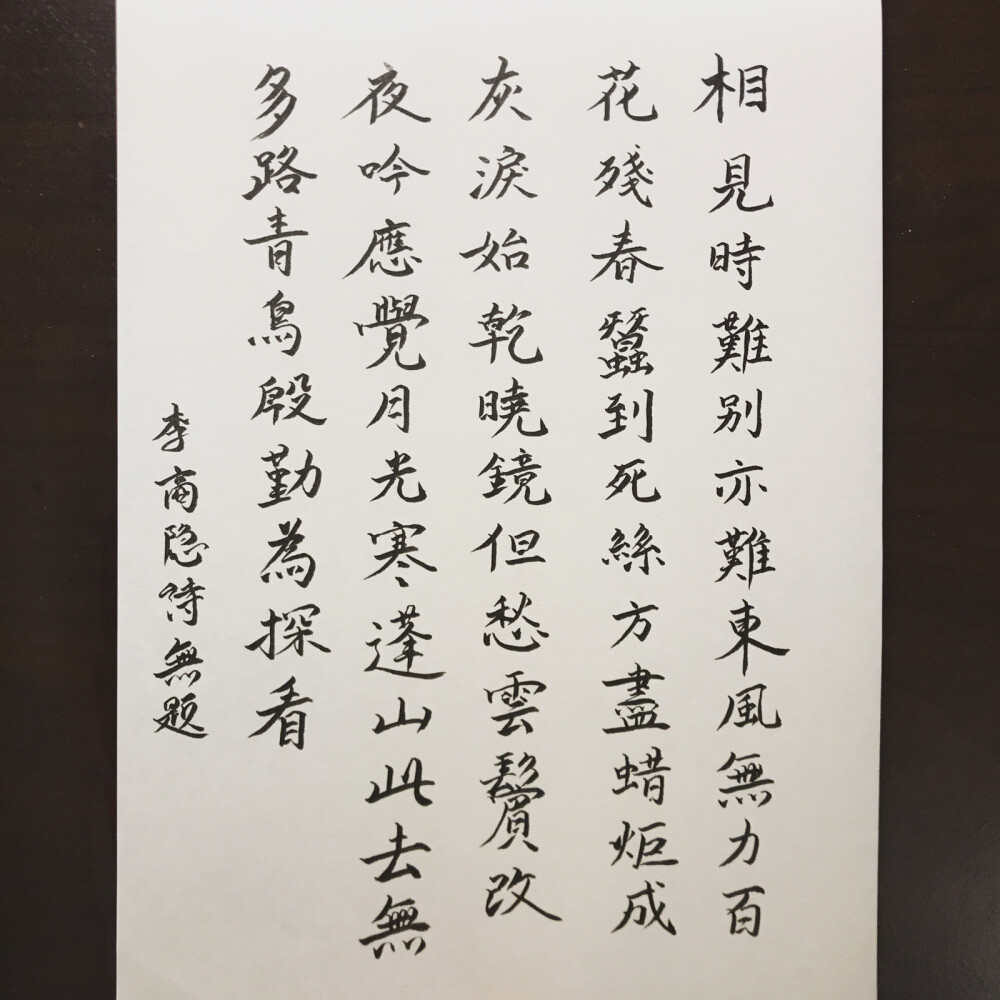 相見時難别亦難東風無力百
花殘春蠶到死絲方盡蜡炬成
灰淚始乾曉鏡但愁雲鬢改
夜吟應覺月光寒蓬山此去無
多路青鳥殷勤為探看
李商隐诗無题